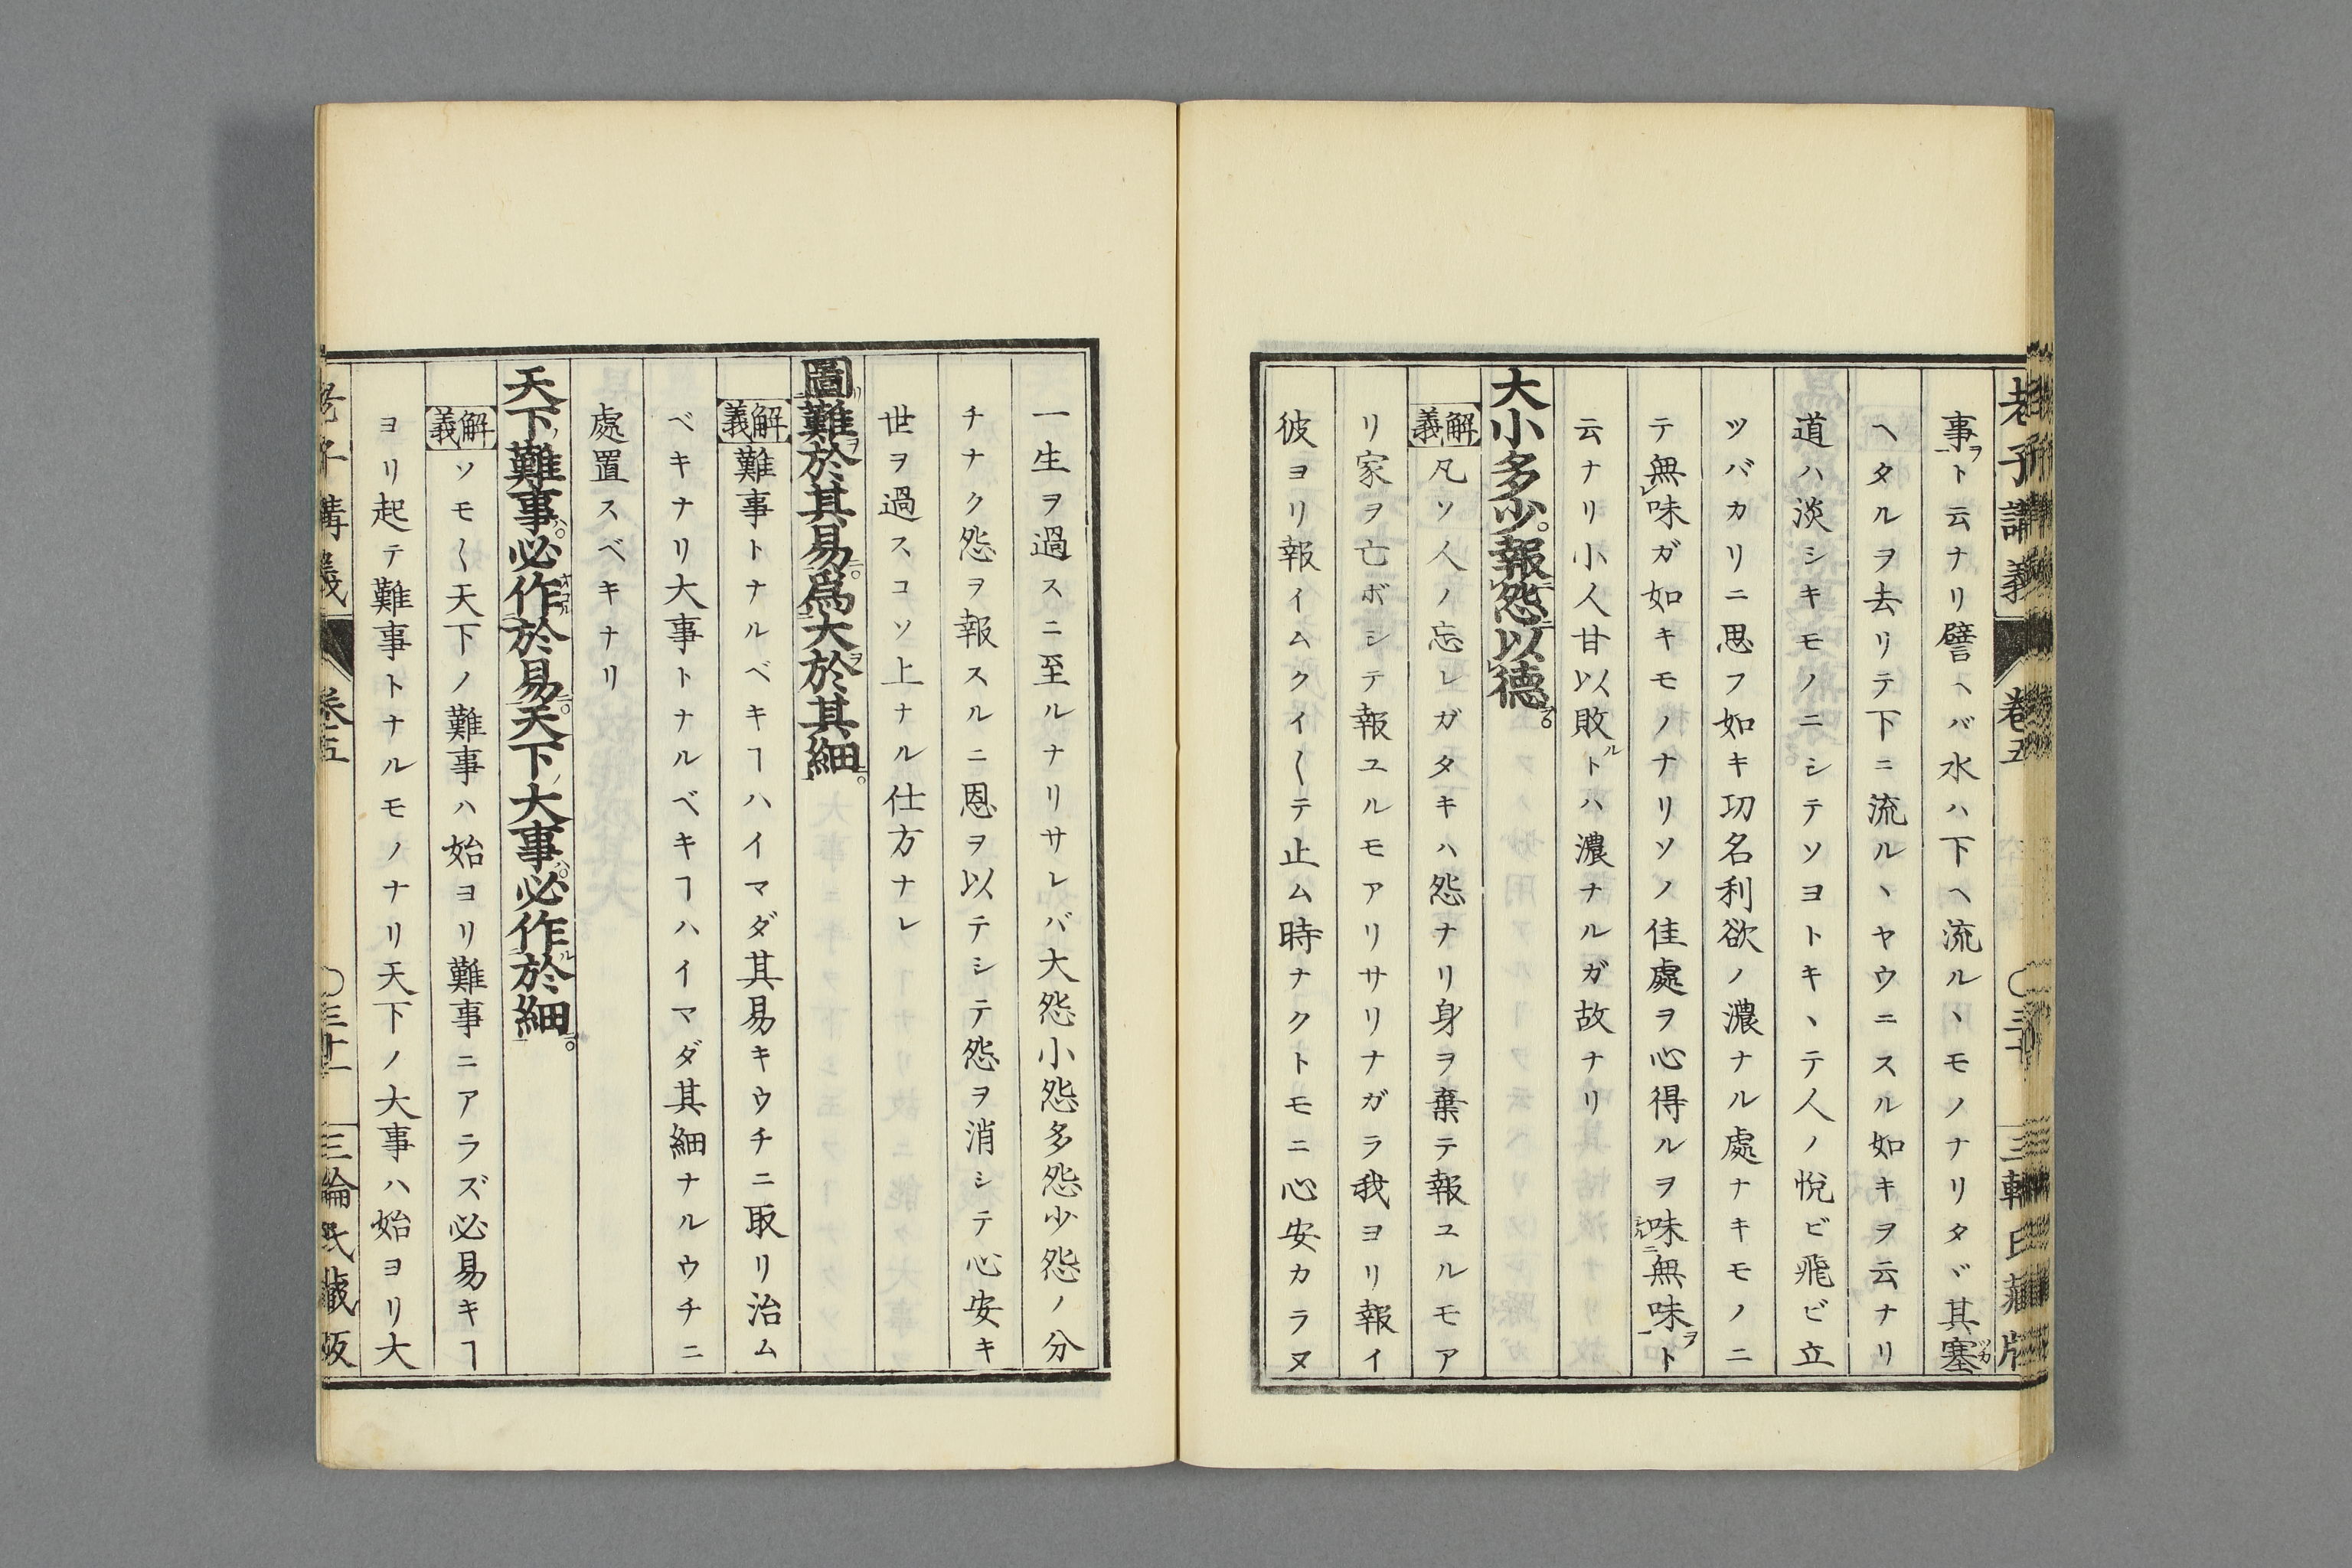 老子講義 卷五 〇三十 三輪氏蔵版
事ヲト云ナリ譬ヘバ水ハ下ヘ流ル丶モノナリタヾ其塞
ヘタルヲ去リテ下ニ流ル丶ヤウニスル如キヲ云ナリ
道ハ淡シキモノニシテソヨトキ丶テ人ノ悦ビ飛ビ立
ツバカリニ思フ如キ功名利欲ノ濃ナル處ナキモノニ
テ無味ガ如キモノナリソノ佳處ヲ心得ルヲ味無味ヲト
云ナリ小人甘以敗ルトハ濃ナルガ故ナリ
大小多少。報怨以德。
解義 凡ソ人ノ忘レガタキハ怨ナリ身ヲ棄テ報ユルモア
リ家ヲ亡ボシテ報ユルモアリサリナガラ我ヨリ報イ
彼ヨリ報イムクイ〱テ止ム時ナクトモニ心安カラヌ
一生ヲ過スニ至ルナリサレバ大怨小怨多怨少怨ノ分
チナク怨ヲ報スルニ恩ヲ以テシテ怨ヲ消シテ心安キ
世ヲ過スコソ上ナル仕方ナレ
圖難於其易。爲大於其細。
解義 難事トナルベキヿハイマダ其易キウチニ取リ治ム
ベキナリ大事トナルベキヿハイマダ其細ナルウチニ
處置スベキナリ
天下難事。必作於易。天下大事。必作於細。
解義 ソモ〱天下ノ難事ハ始ヨリ難事ニアラズ必易キヿ
ヨリ起テ難事トナルモノナリ天下ノ大事ハ始ヨリ大
老子講義 卷五 〇三十一 三輪氏蔵版